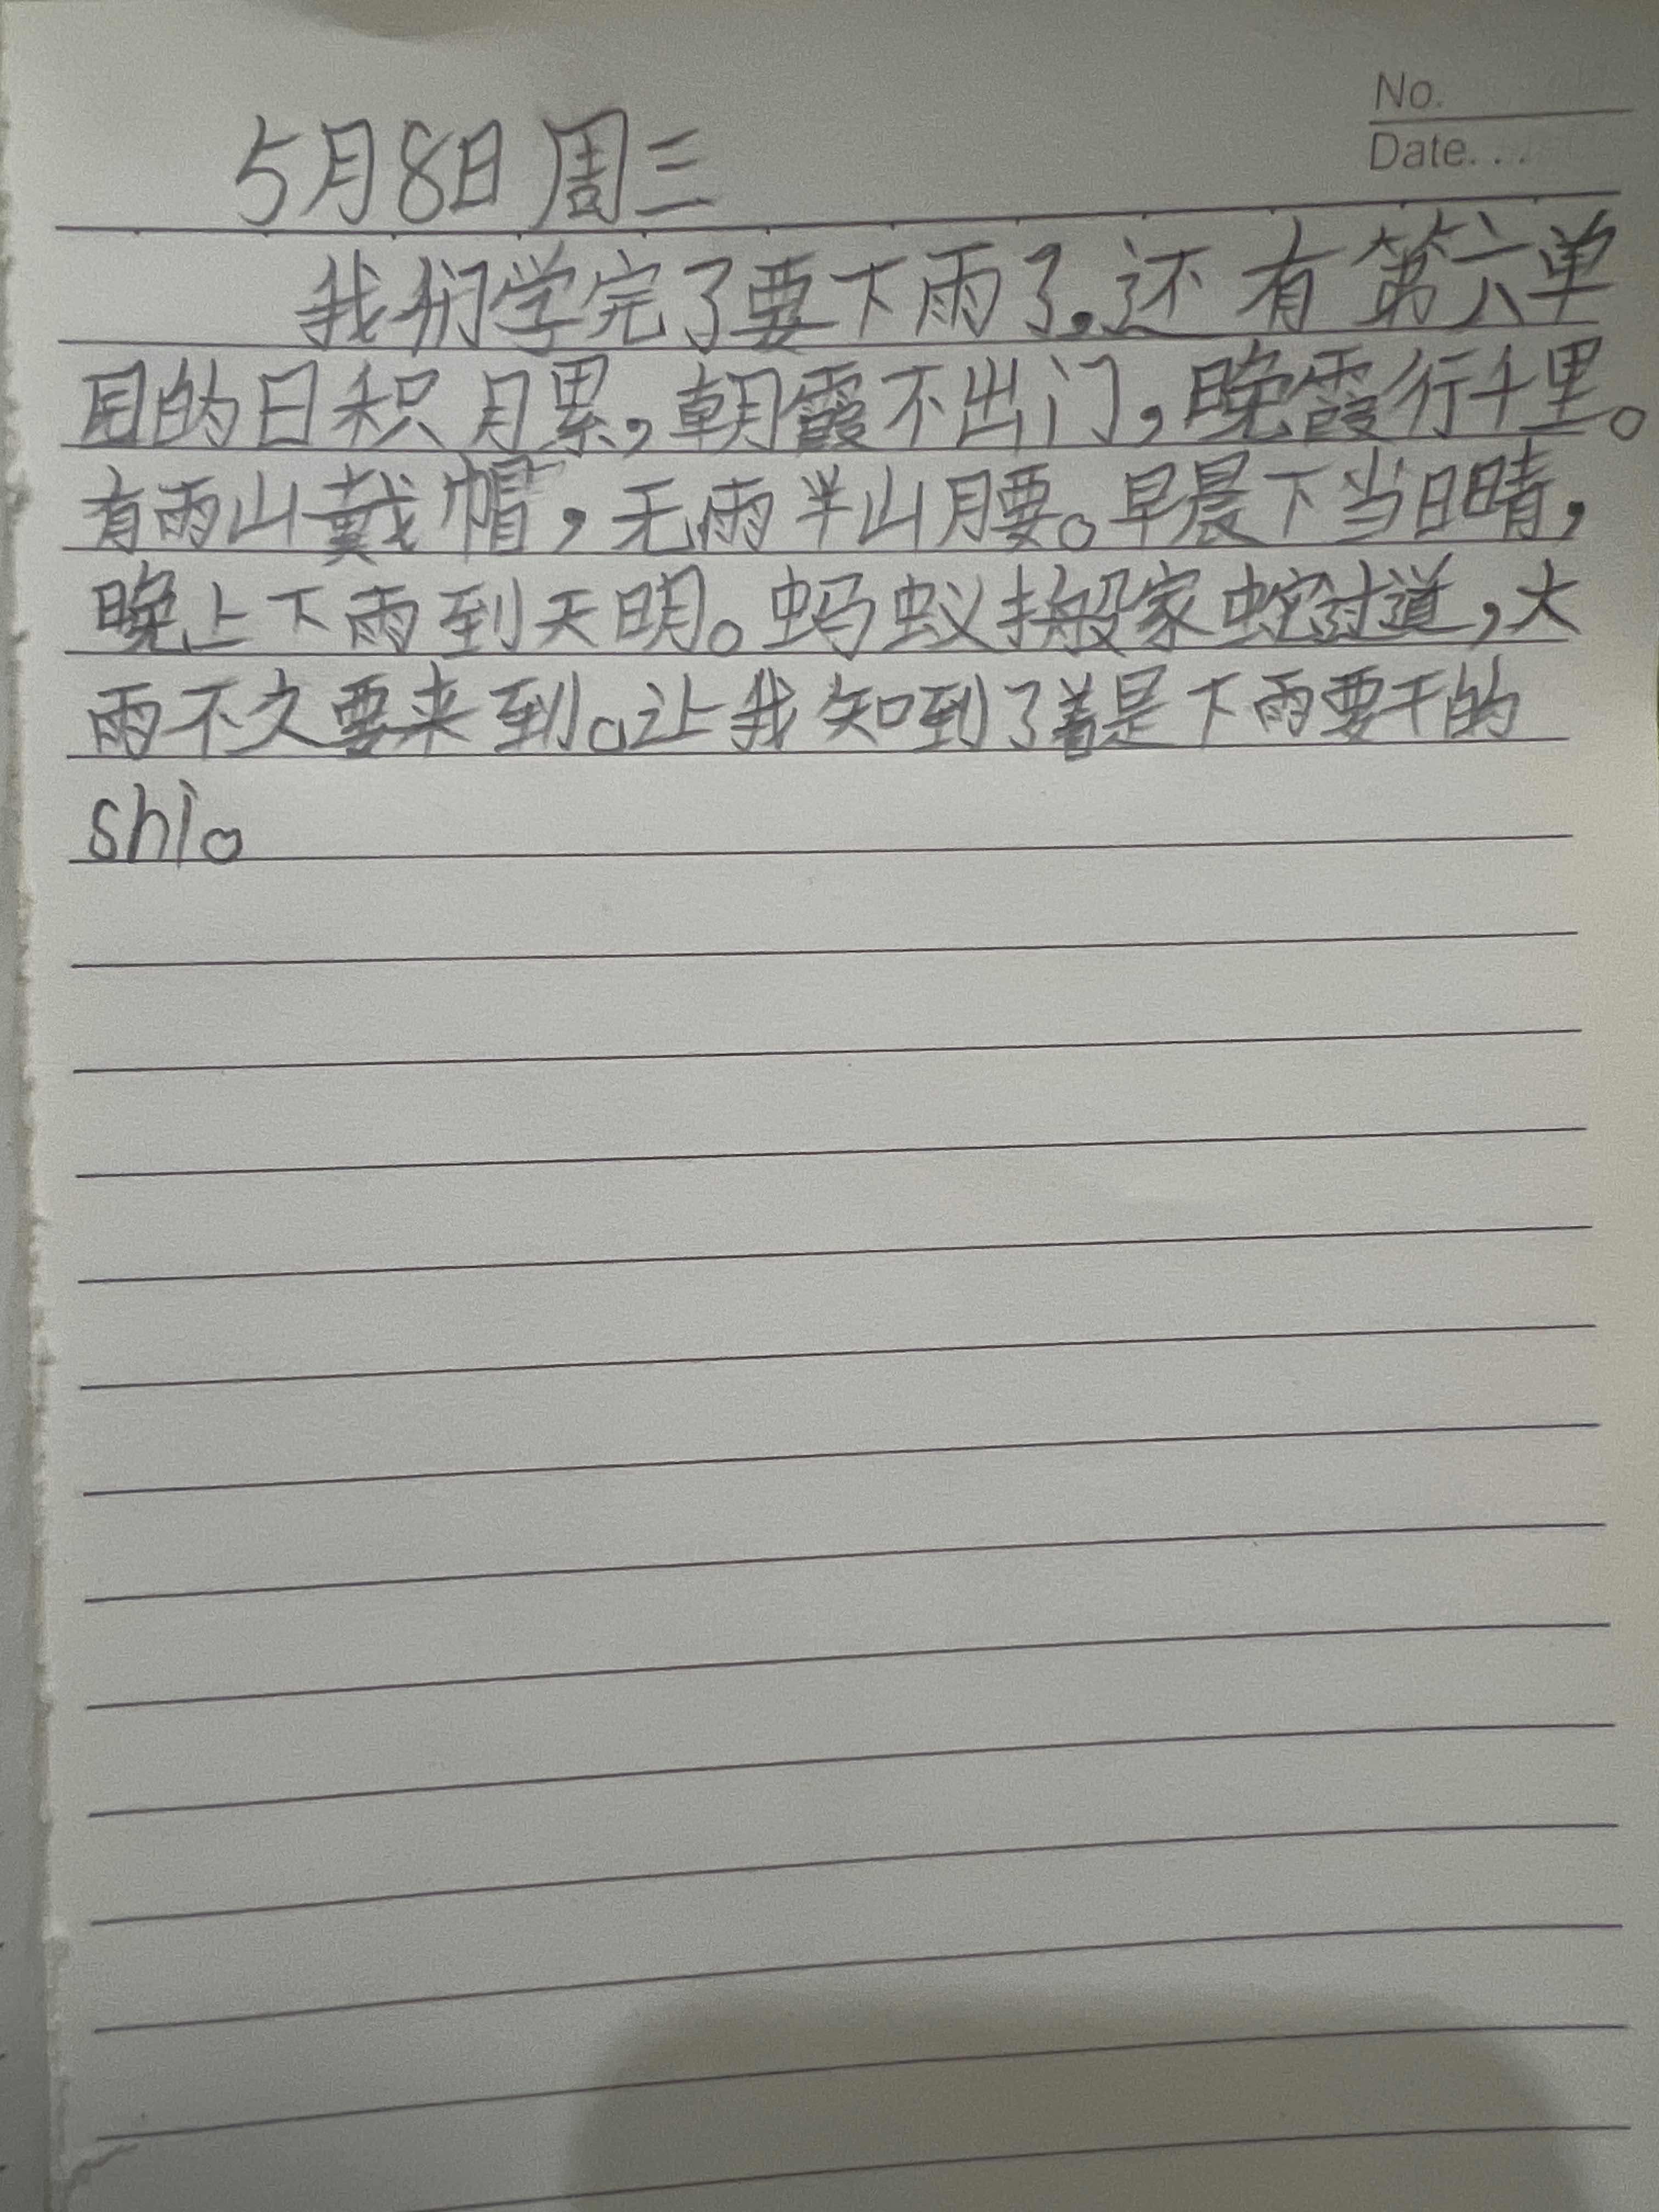 No.
Date. . .
5月8日 周三
我们学完了要下雨了。还有第六单
园的日积月累，朝霞不出门，晚霞行千里。
有雨山戴帽，无雨半山腰。早晨下当日晴，
晚上下雨到天明。蚂蚁搬家蛇过道，大
雨不久要来到。让我知到了着是下雨要干的
shi。